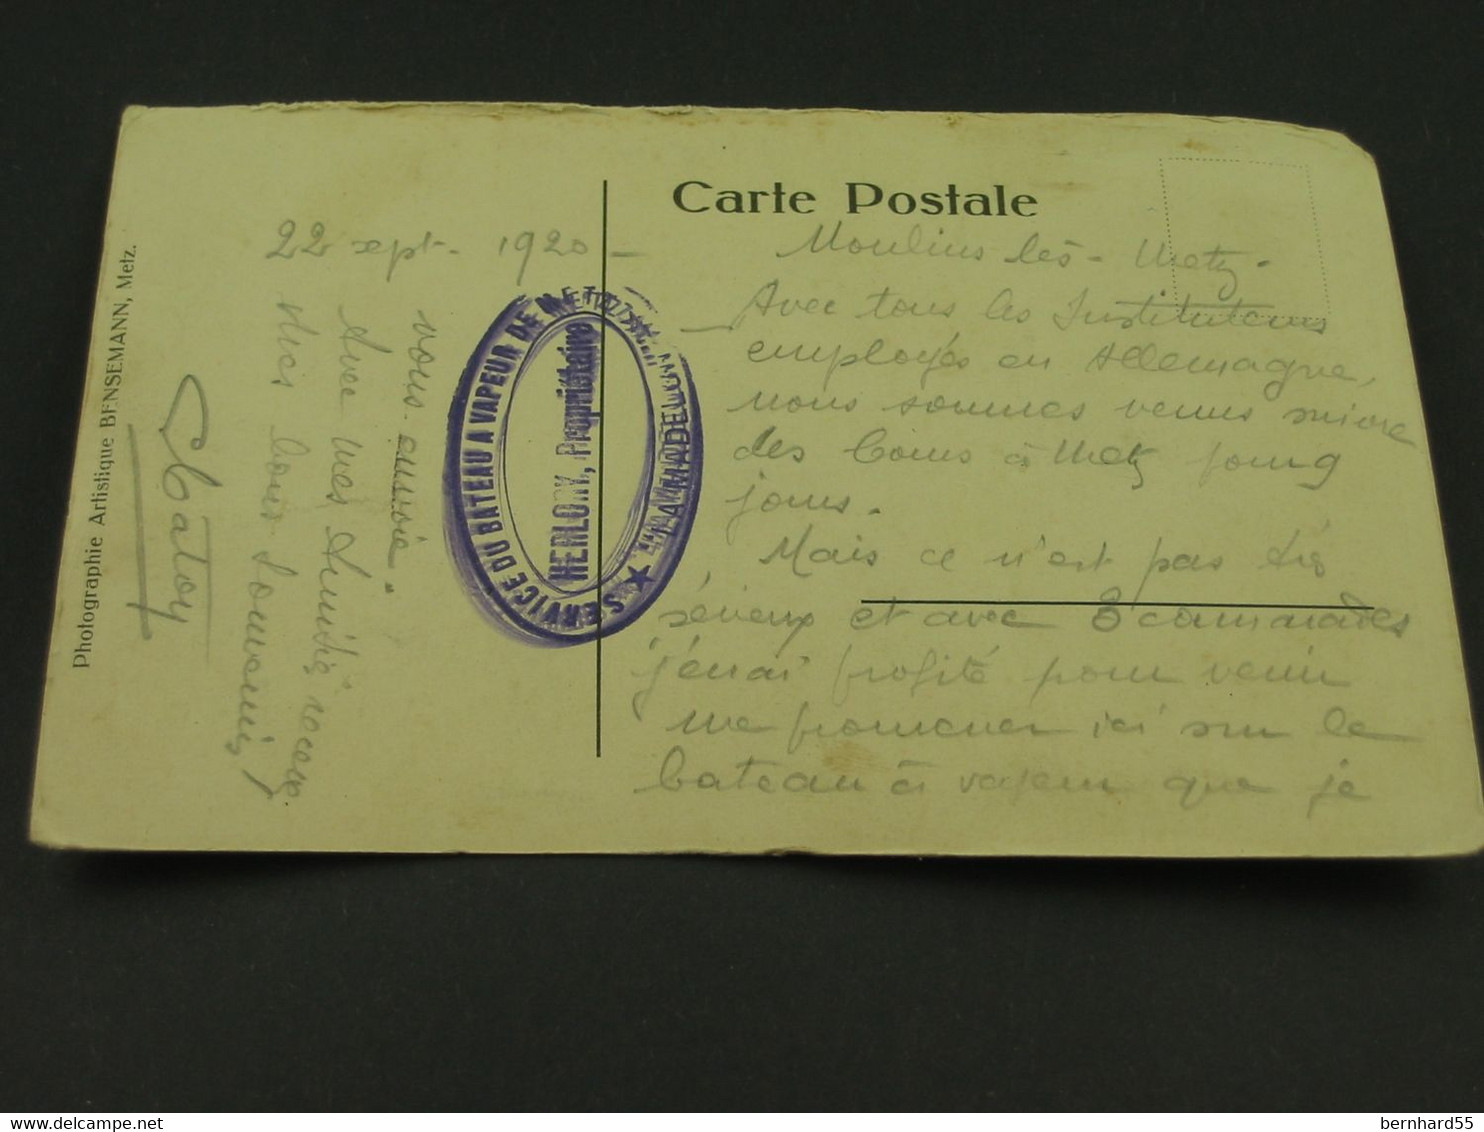 Carte Postale
22 sept. 1920 -
Moulins lès - Metz.
Avec tous les Instituteurs
employés en Allemagne,
nous sommes venus suivre
des cours à Metz pour 9
jours.
Mais ce n'est pas très
sérieux et avec 3 camarades
j'en ai profité pour venir
me promener ici sur le
bateau à vapeur que je
vous envoie.
Avec mes Amitiés recevez
mes bons souvenirs
SERVICE DU BATEAU A VAPEUR DE METZ
"LA MADELON"
HERLORY, Propriétaire
Photographie Artistique BENSEMANN, Metz.
bernhard55